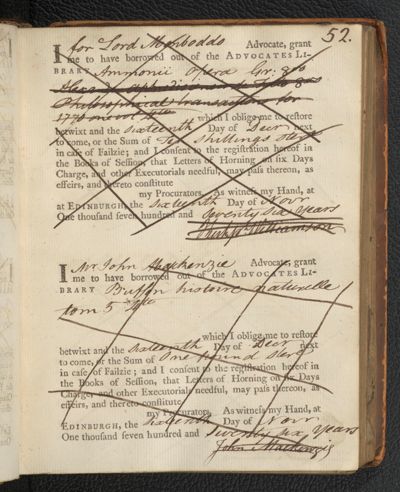 52.
I for Lord Monboddo Advocate, grant
me to have borrowed out of the ADVOCATES LI-
BRARY Ammonii opera Gr: 8vo
Philosophical transactions for
1776 one vol 4to which I oblige me to restore
betwixt and the sixteenth Day of Decr next
to come, or the Sum of Ten Shillings Sterg
in case of Failzie; and I consent to the registration hereof in
the Books of Session, that Letters of Horning on six Days
Charge, and other Executorials needful, may pass thereon, as
effeirs, and thereto constitute
my Procurators. As witness my Hand, at
at EDINBURGH, the Sixteenth Day of Novr
One thousand seven hundred and Seventy Six years
Williamson
I Mr John Mackenzie Advocate, grant
me to have borrowed out of the ADVOCATES LI-
BRARY Buffon histoire naturelle
tom 5 4to
which I oblige me to restore
betwixt and the sixteenth Day of Decr next
to come, or the Sum of One pound Sterg
in case of Failzie; and I consent to the registration hereof in
the Books of Session, that Letters of Horning on six Days
Charge, and other Executorials needful, may pass thereon, as
effeirs, and thereto constitute
my Procurators. As witness my Hand, at
EDINBURGH, the Sixteenth Day of Novr
One thousand seven hundred and Seventy six years
John Mackenzie